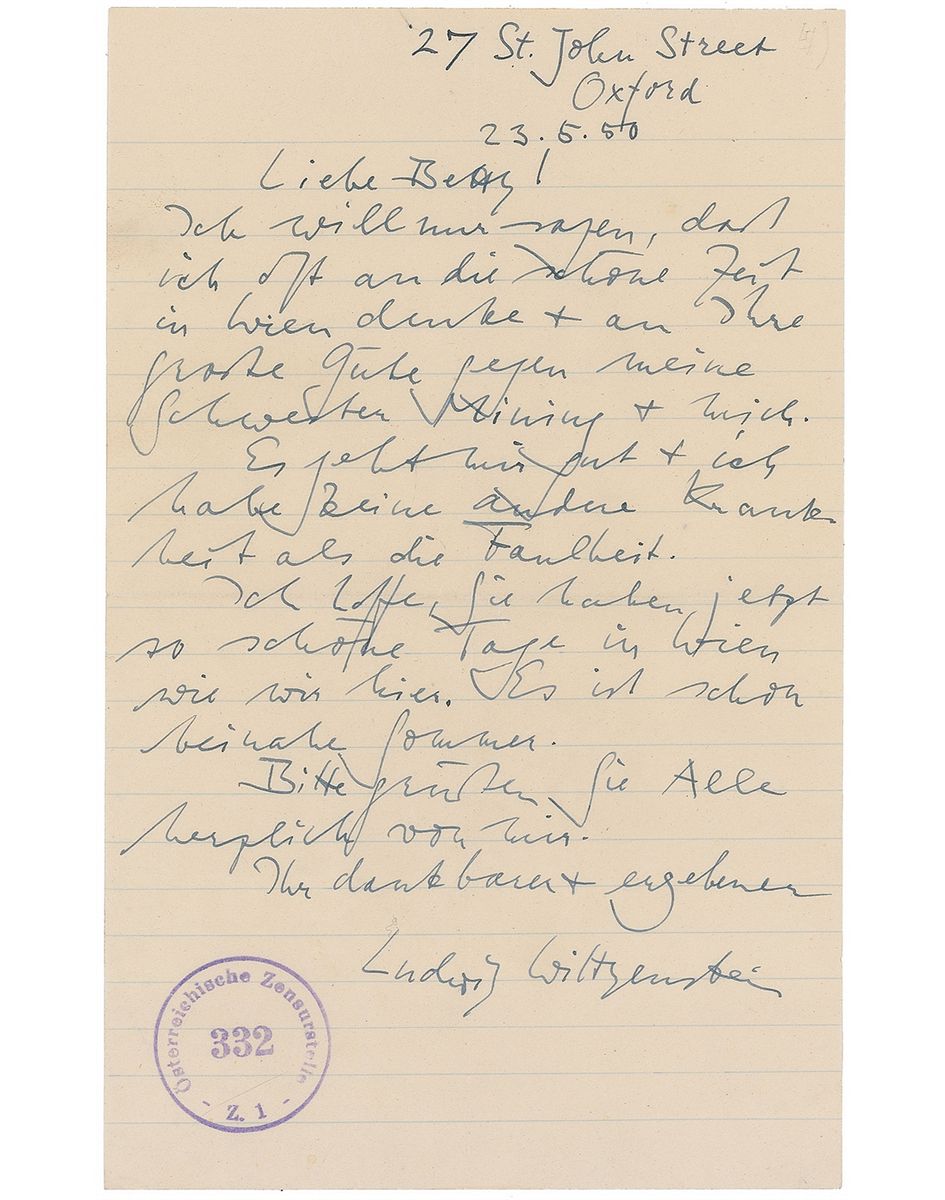 27 St. John Street
Oxford
23.5.50
Liebe Betty!
Ich will nur sagen, daß
ich oft an die schöne Zeit
in Wien denke + an Ihre
große Güte gegen meine
Schwester Mining + mich.
Es geht mir gut + ich
habe keine andere Krank-
heit als die Faulheit.
Ich hoffe, Sie haben jetzt
so schöne Tage in Wien
wie wir hier. Es ist schon
beinahe Sommer.
Bitte grüßen Sie Alle
herzlich von mir.
Ihr dankbarer + ergebener
Ludwig Wittgenstein
Österreichische Zensurstelle
332
- Z. 1 -